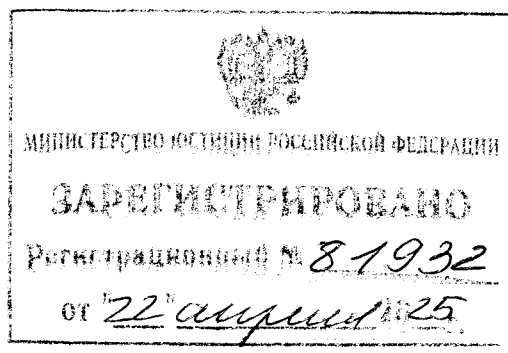 МИНИСТЕРСТВО ЮСТИЦИИ РОССИЙСКОЙ ФЕДЕРАЦИИ
ЗАРЕГИСТРИРОВАНО
Регистрационный № 81932
от "22" апреля 2025